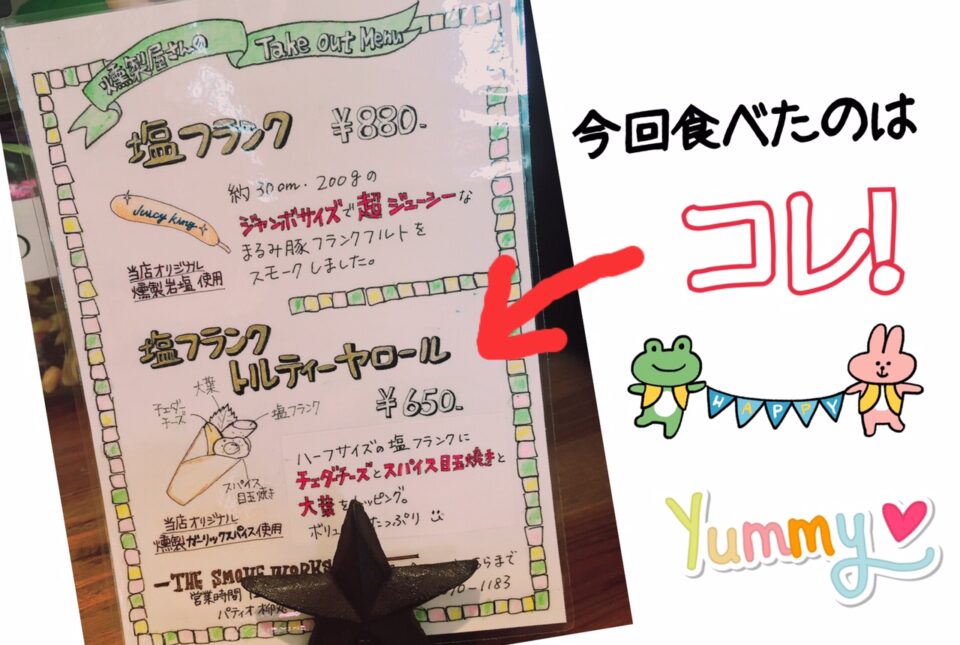 燻製屋さんの Take out Menu
塩フランク ¥880-
約30cm・200gの
ジャンボサイズで超ジューシーな
まるみ豚フランクフルトを
スモークしました。
Juicy king
当店オリジナル
燻製岩塩使用
塩フランク
トルティーヤロール
¥650-
大葉
チェダー
チーズ
塩フランク
スパイス
目玉焼き
当店オリジナル
燻製ガーリックスパイス使用
ハーフサイズの塩フランクに
チェダーチーズとスパイス目玉焼きと
大葉をトッピング。
たっぷり
THE SMOKE WORKS
営業時間 までま
パティオ
1183
今回食べたのは
コレ!
HAPPY
Yummy